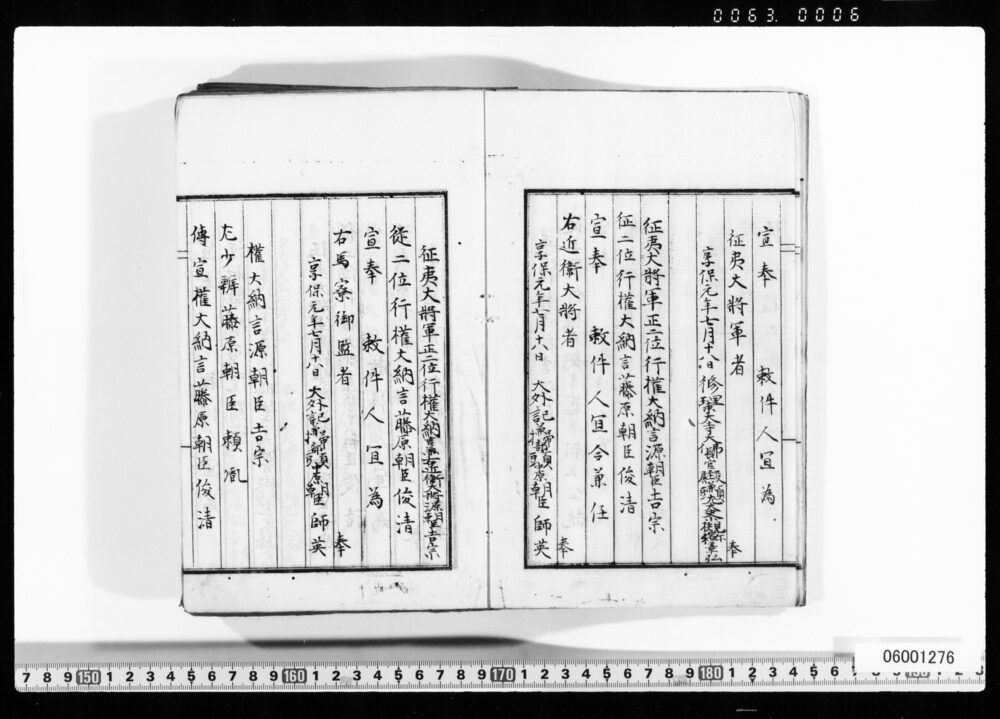 0063. 0006
宣奉 敕件人宜為
征夷大將軍者
享保元年七月十八日 修理 奉
征夷大將軍正二位行權大納言源朝臣吉宗
從二位行權大納言藤原朝臣俊清
宣奉 敕件人宜令兼任
右近衛大將者
享保元年七月十八日 大外記兼掃部頭 中原朝臣師英 奉
征夷大將軍正二位行權大納言兼右近衛大將源朝臣吉宗
從二位行權大納言藤原朝臣俊清
宣奉 敕件人宜為
右馬寮御監者
享保元年七月十八日 大外記兼掃部頭 中原朝臣師英 奉
權大納言源朝臣吉宗
左少辨藤原朝臣賴胤
傳宣權大納言藤原朝臣俊清
7 8 9 150 1 2 3 4 5 6 7 8 9 160 1 2 3 4 5 6 7 8 9 170 1 2 3 4 5 6 7 8 9 180 1 2 3 4 5 6
06001276